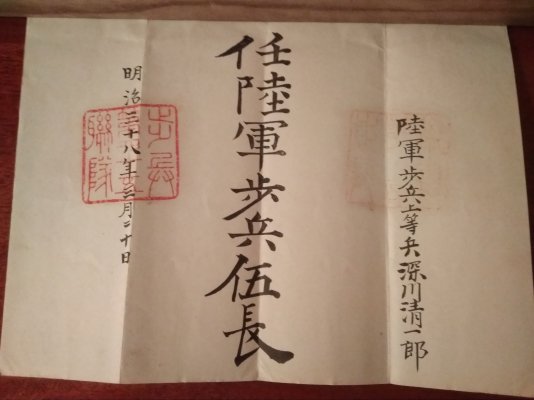 陸軍歩兵上等兵深川清一郎
任陸軍歩兵伍長
明治三十八年三月二十日